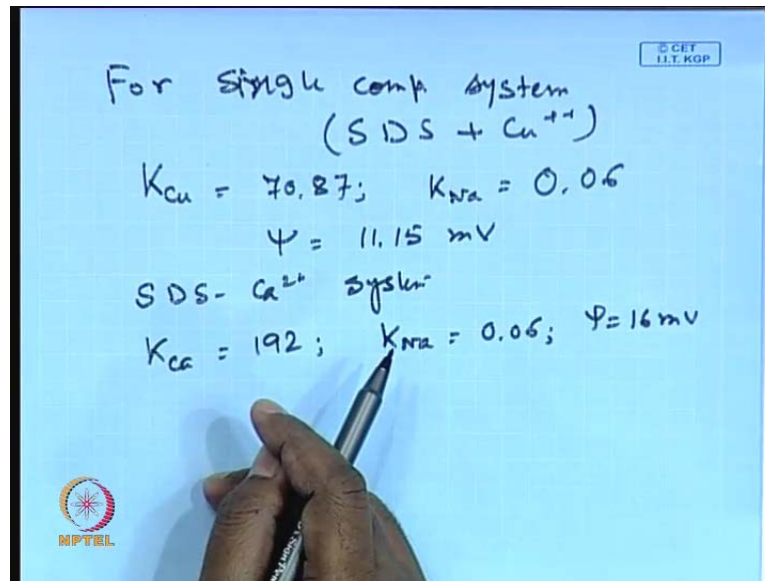 © CET
I.I.T. KGP
For single comp. system
(SDS + Cu++)
KCu = 70.87; KNa = 0.06
Ψ = 11.15 mV
SDS- Ca2+ system
KCa = 192; KNa = 0.06; Ψ = 16 mV
NPTEL